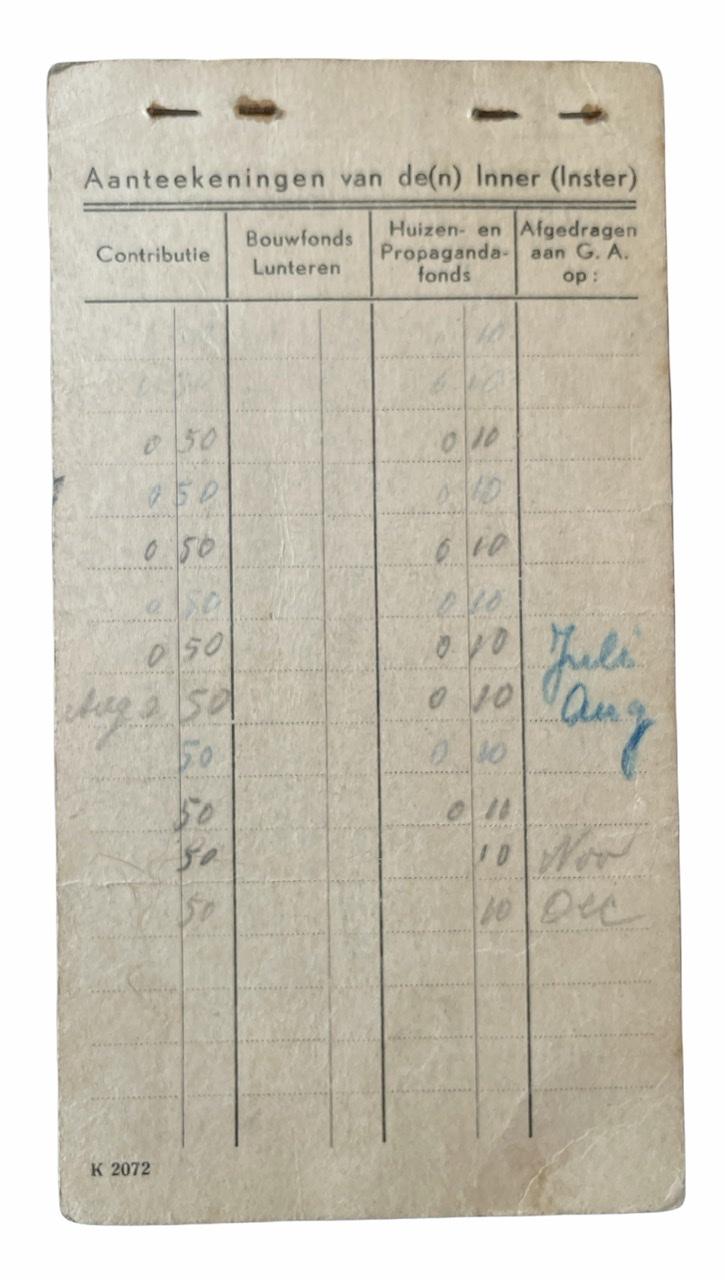 Aanteekeningen van de(n) Inner (Inster)
Contributie
Bouwfonds
Lunteren
Huizen- en
Propaganda-
fonds
Afgedragen
aan G. A.
op :
10
0 10
0 50 0 10
0 50 0 10
0 50 0 10
0 50 0 10
0 50 0 10 Juli
Aug 50 0 10 Aug
50 0 10
50 0 10
50 10 Nov
50 10 Dec
K 2072